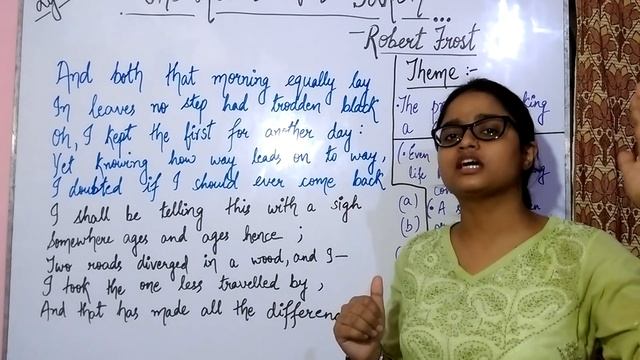 - Robert Frost
And both that morning equally lay
In leaves no step had trodden black
Oh, I kept the first for another day :
Yet knowing how way leads on to way,
I doubted if I should ever come back
I shall be telling this with a sigh
Somewhere ages and ages hence ;
Two roads diverged in a wood, and I—
I took the one less travelled by,
And that has made all the differen
Theme :-
• The
king
a
(• Even
life
(a)
• A
(b)